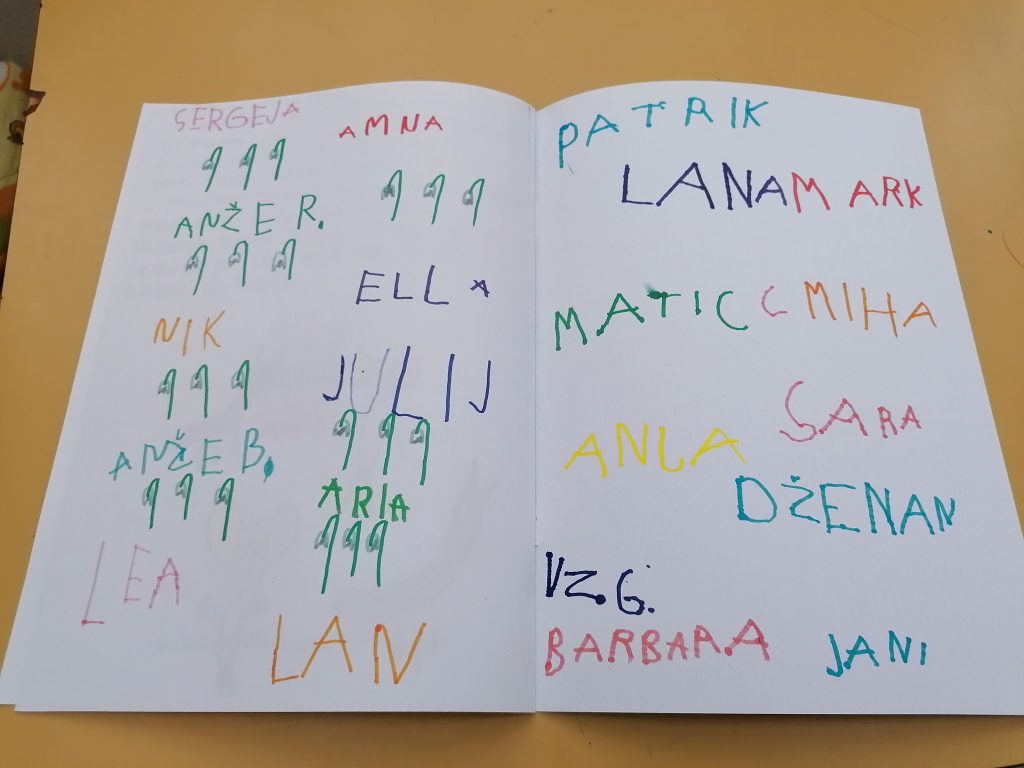 SERGEJA
AMNA
ANŽE R.
ELLA
NIK
JULIJ
ANŽE B.
ARIA
LEA
LAN
PATRIK
LANA MARK
MATIC C MIHA
SARA
ANJA
DŽENAN
VZ. G.
BARBARA
JANI